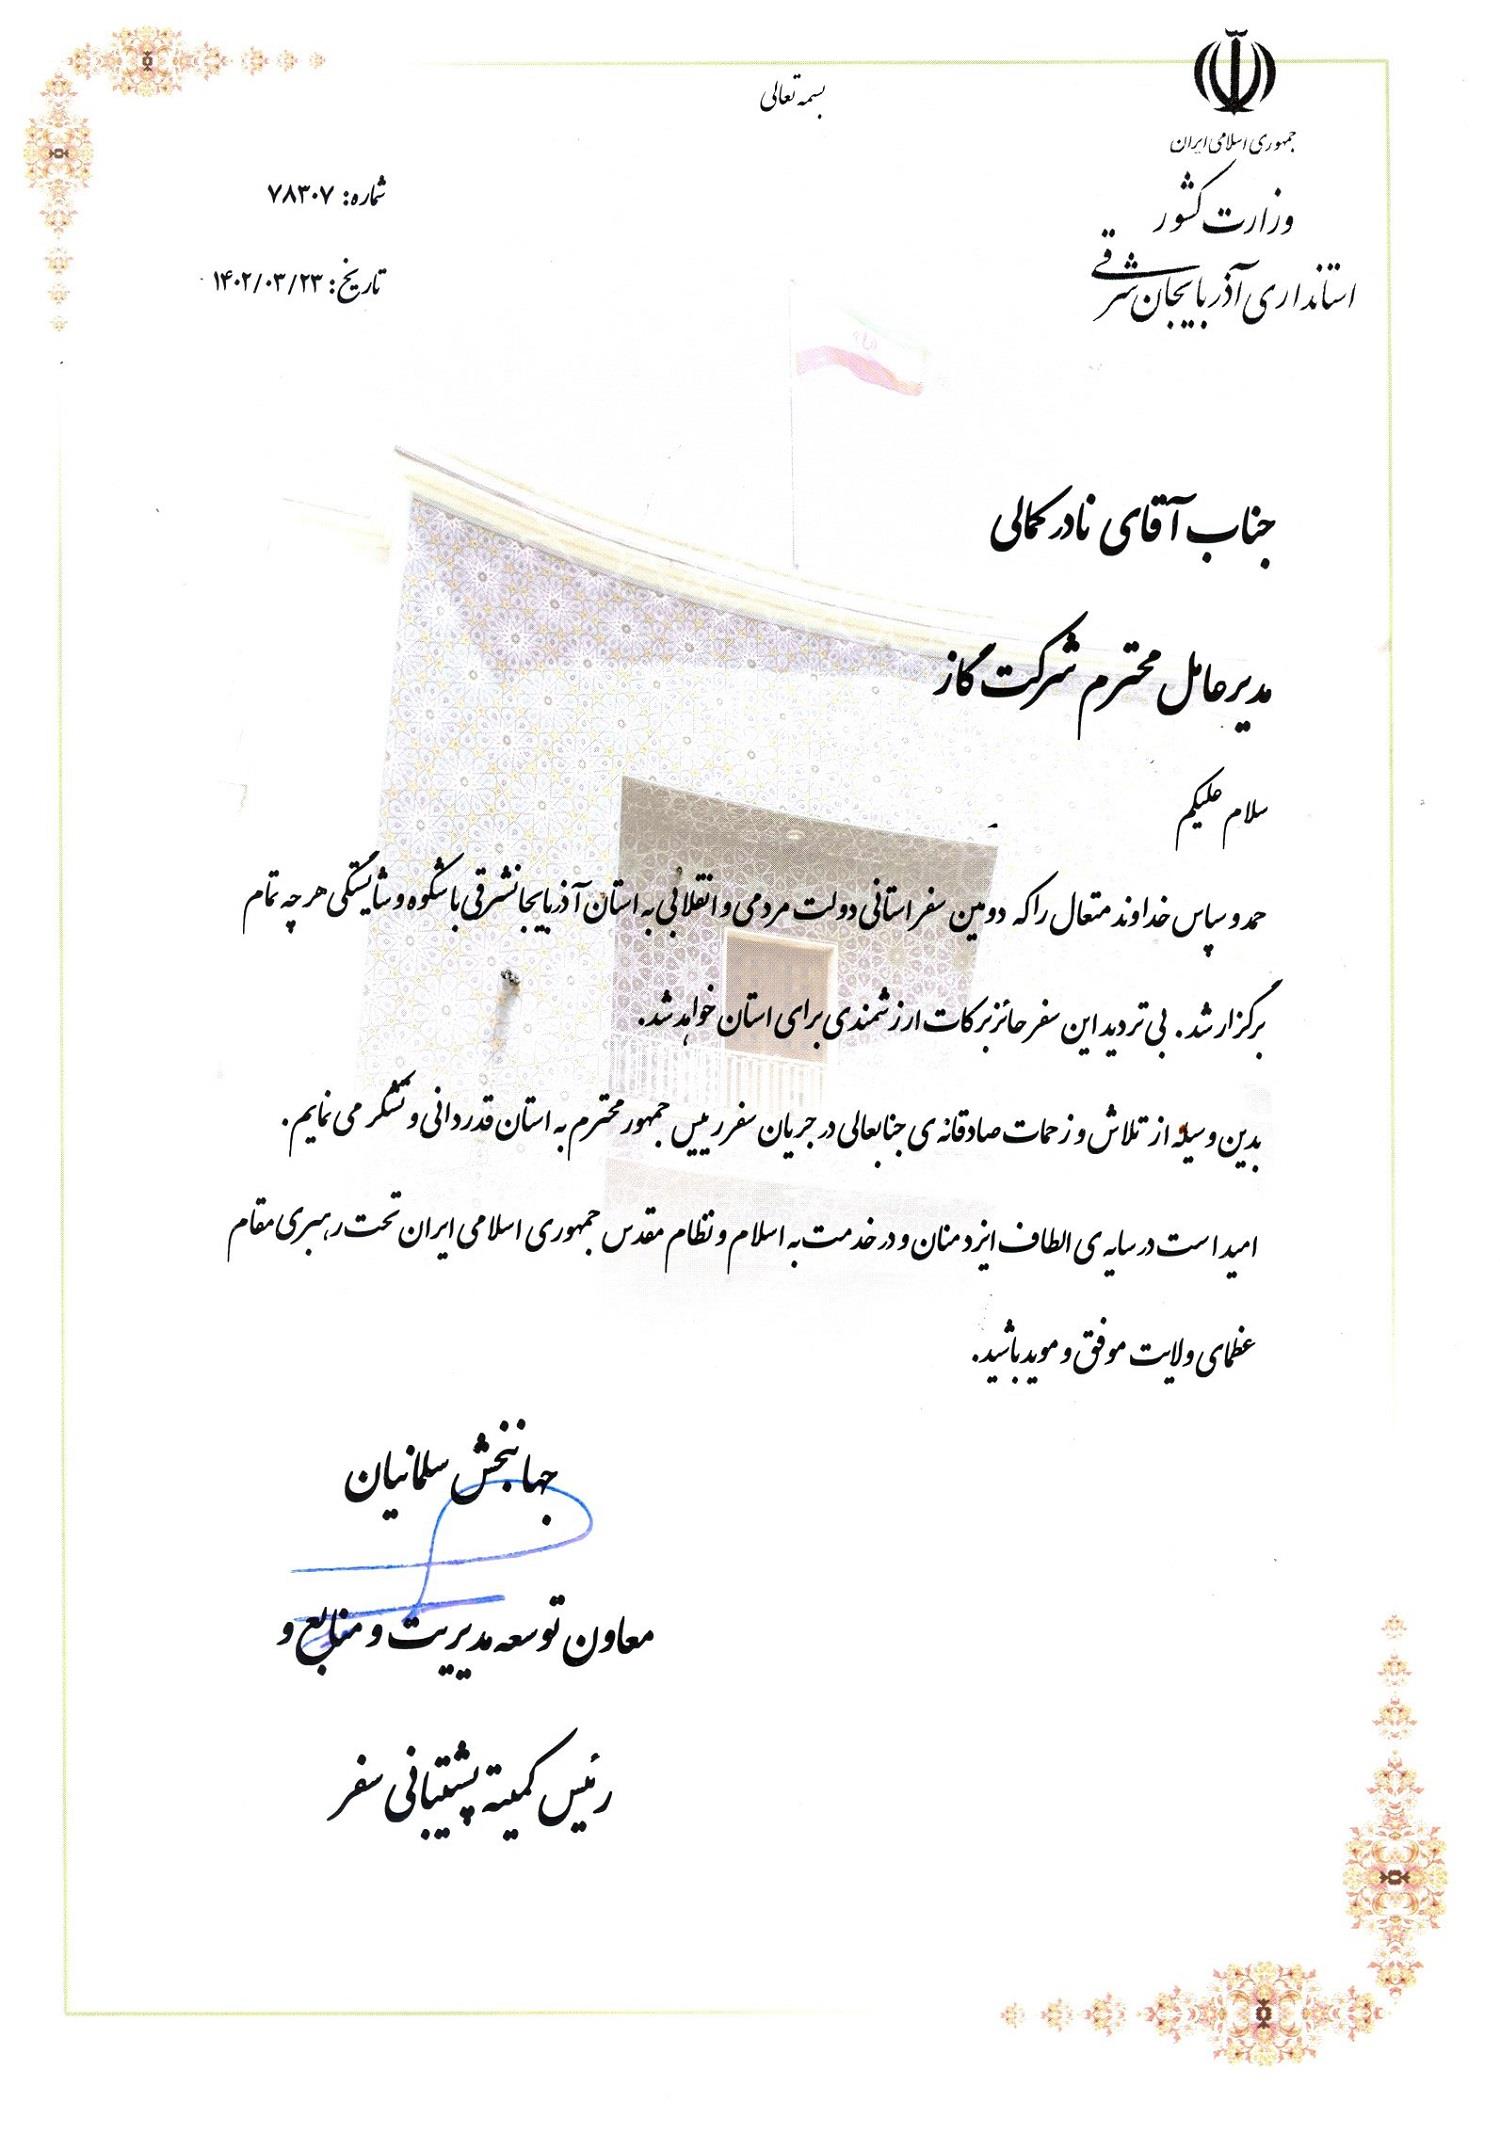 بسمه تعالی
جمهوری اسلامی ایران
وزارت کشور
استانداری آذربایجان شرقی
شماره: ۷۸۳۰۷
تاریخ: ۱۴۰۲/۰۳/۲۳
جناب آقای نادر کمالی
مدیرعامل محترم شرکت گاز
سلام علیکم
حمد و سپاس خداوند متعال را که دومین سفر استانی دولت مردمی و انقلابی به استان آذربایجانشرقی با شکوه و شایستگی هر چه تمام
برگزار شد. بی تردید این سفر حائز برکات ارزشمندی برای استان خواهد شد.
بدین وسیله از تلاش و زحمات صادقانه ی جنابعالی در جریان سفر رییس جمهور محترم به استان قدردانی و تشکر می نمایم.
امید است در سایه ی الطاف ایزد منان و در خدمت به اسلام و نظام مقدس جمهوری اسلامی ایران تحت رهبری مقام
عظمای ولایت موفق و موید باشید.
جهانبخش سلمانیان
معاون توسعه مدیریت و منابع و
رئیس کمیته پشتیبانی سفر